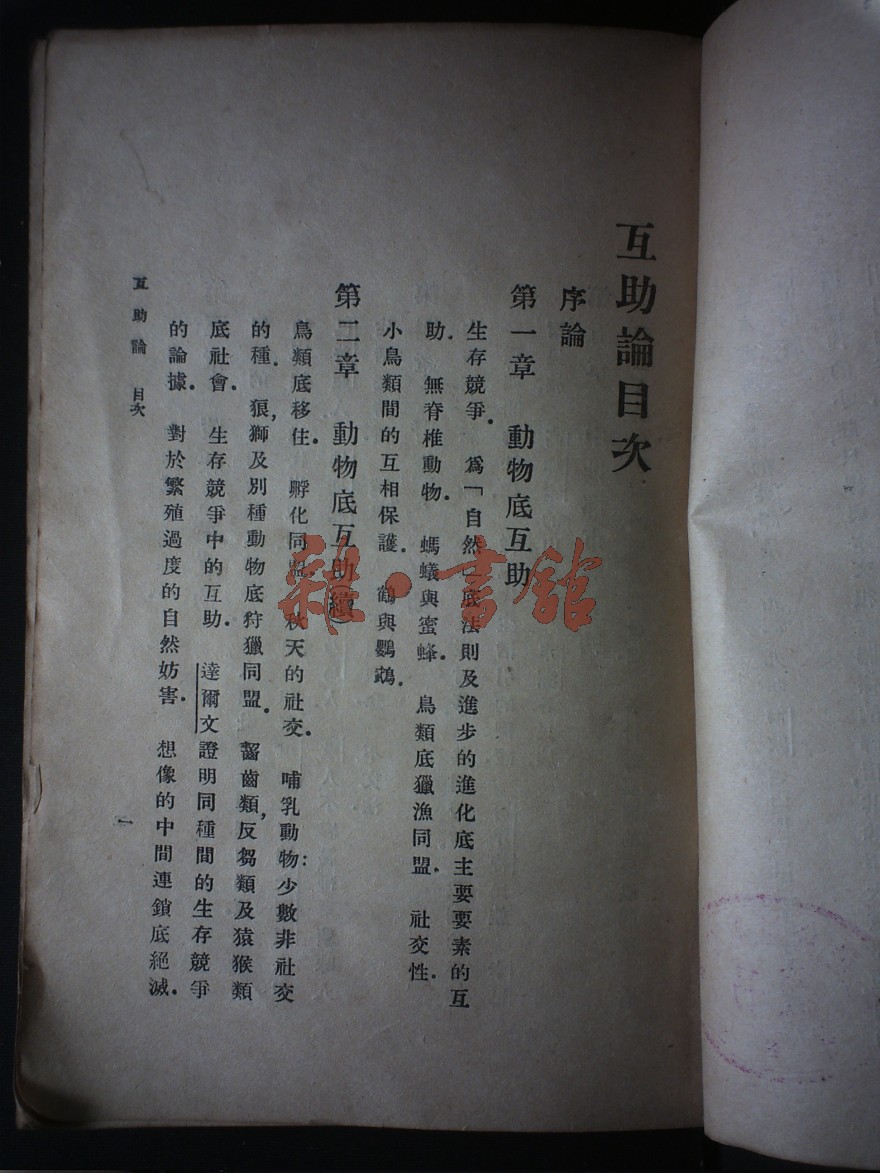 互助論目次
序論
第一章　動物底互助
生存競爭．　爲「自然」底法則及進步的進化底主要要素的互
助．　無脊椎動物．　螞蟻與蜜蜂．　鳥類底獵漁同盟．　社交性．
小鳥類間的互相保護．　鶴與鸚鵡．
第二章　動物底互助(續)
鳥類底移住．　孵化同盟．　秋天的社交．　哺乳動物：少數非社交
的種．　狼，獅及別種動物底狩獵同盟．　齧齒類，反芻類及猿猴類
底社會．　生存競爭中的互助．　達爾文證明同種間的生存競爭
的論據．　對於繁殖過度的自然妨害．　想像的中間連鎖底絕滅．
互助論　目次
一
雜·書館